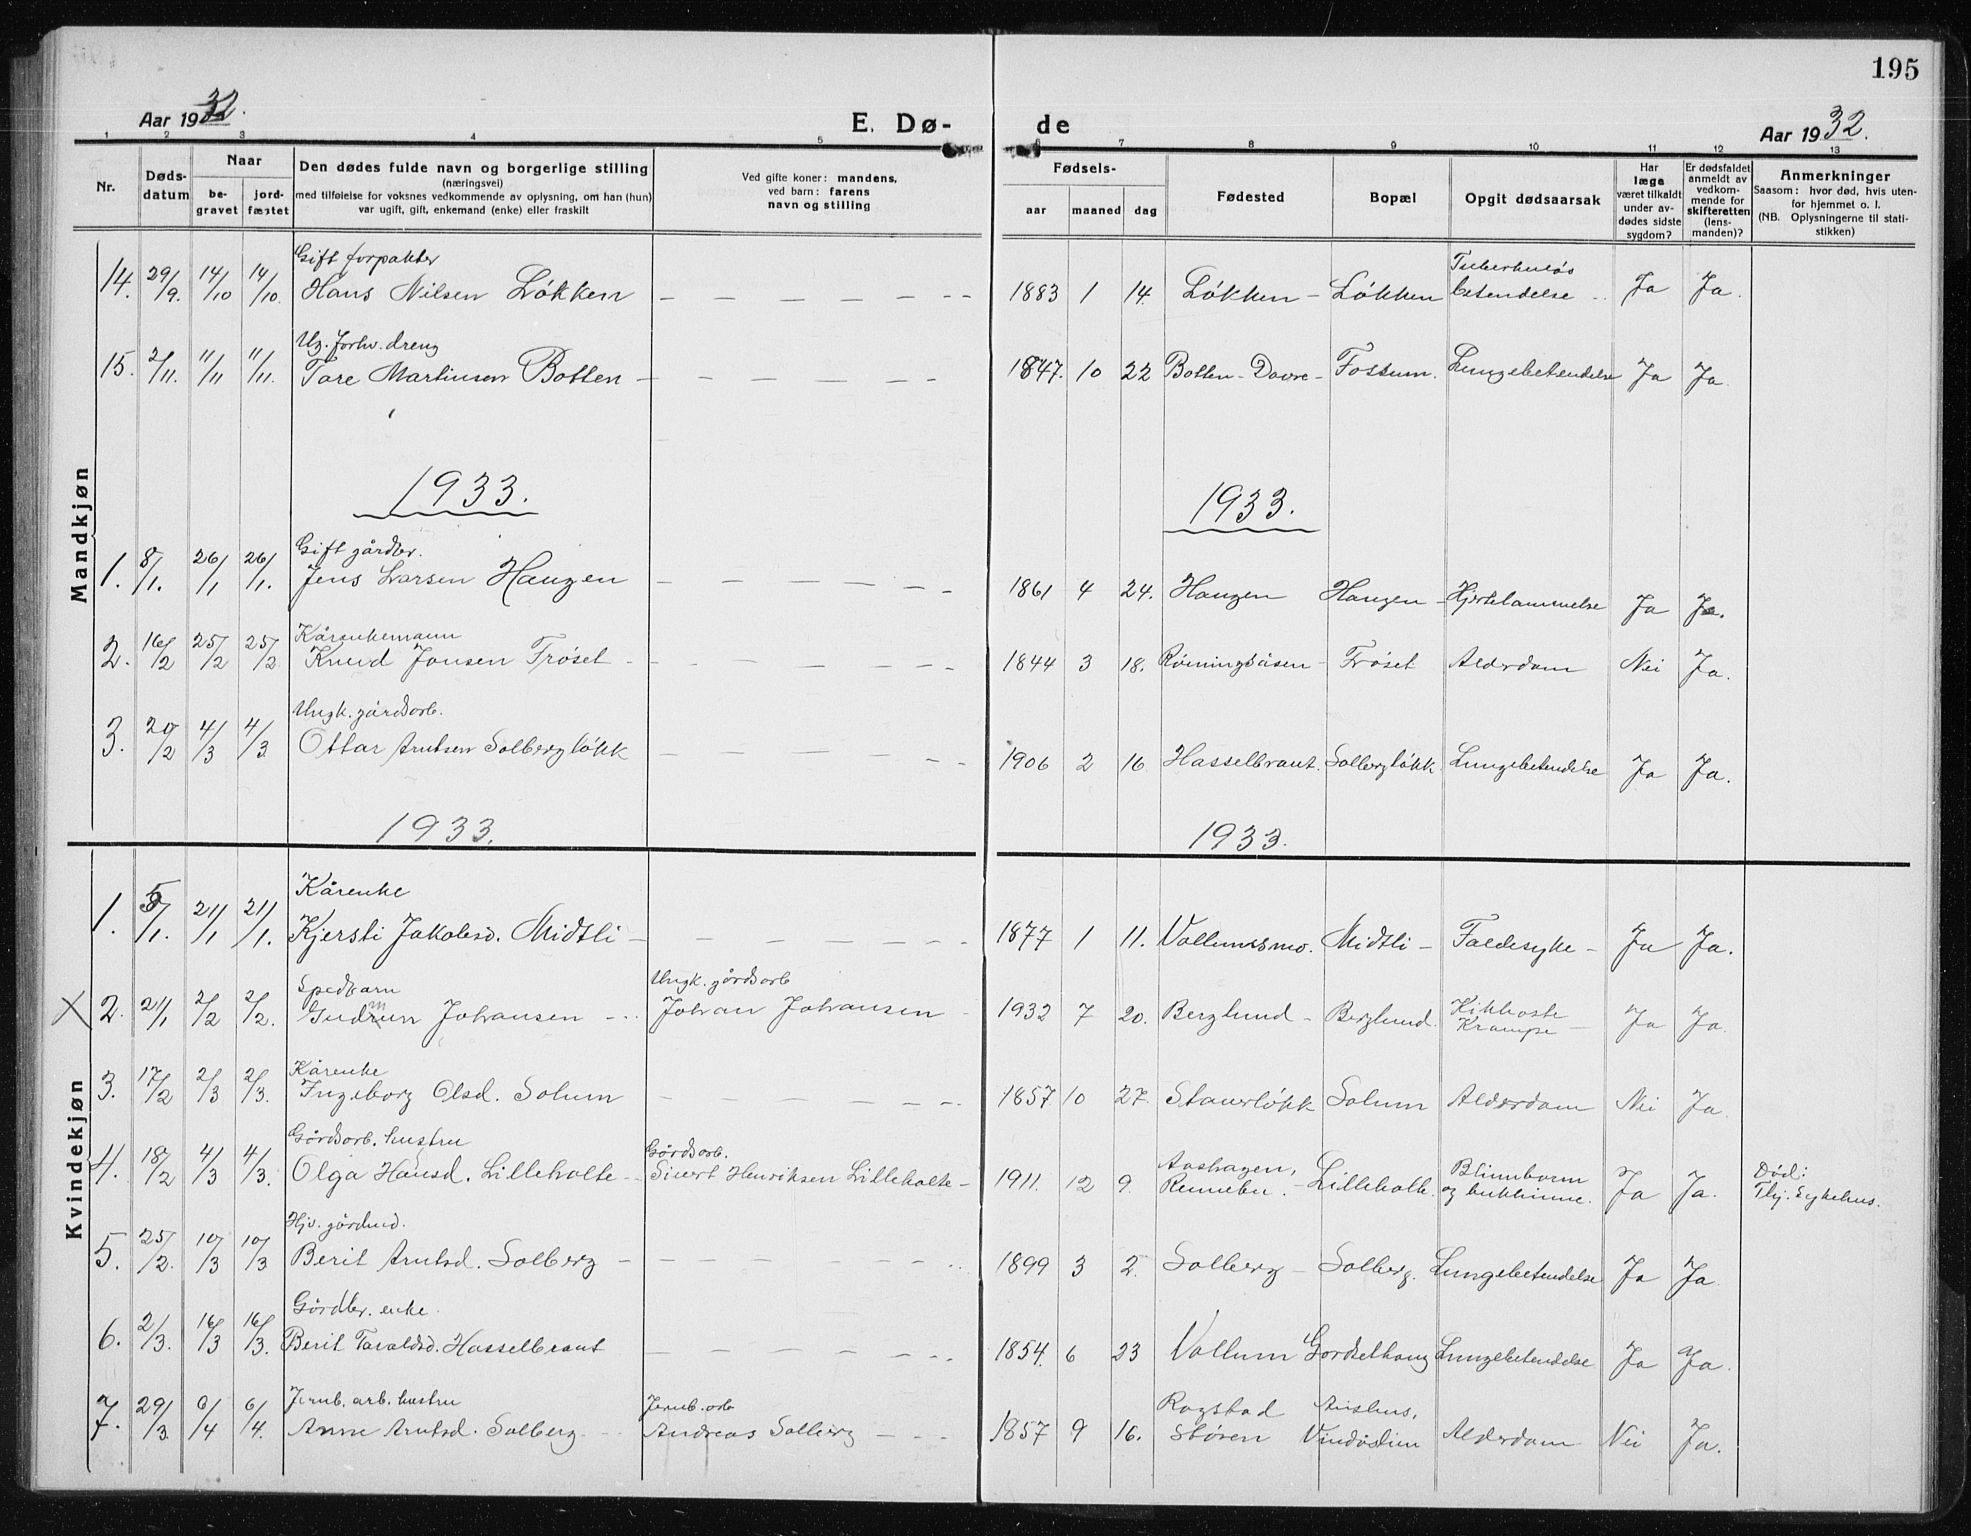 195
Aar 1932.
E. Dø-
de
Aar 1932.
1 2 3 4 5 6 7 8 9 10 11 12 13
Nr.
Døds-
datum
Naar
be-
gravet
jord-
fæstet
Den dødes fulde navn og borgerlige stilling
(næringsvei)
med tilføielse for voksnes vedkommende av oplysning, om han (hun)
var ugift, gift, enkemand (enke) eller fraskilt
Ved gifte koner: mandens,
ved barn: farens
navn og stilling
Fødsels-
aar maaned dag
Fødested
Bopæl
Opgit dødsaarsak
Har
læge
været tilkaldt
under av-
dødes sidste
sygdom?
Er dødsfaldet
anmeldt av
vedkom-
mende for
skifteretten
(lens-
manden)?
Anmerkninger
Saasom: hvor død, hvis uten-
for hjemmet o. l.
(NB. Oplysningerne til stati-
stikken)
Mandkjøn
Gift forpakter
14. 29/9. 14/10 14/10. Hans Nilsen Løkken — 1883 1 14. Løkken — Løkken Tuberkuløs betendelse Ja Ja.
Ug. forhv. dreng
15. 2/11. 11/11 11/11. Tore Martinsen Botten — 1847. 10 22 Botten - Dovre - Fossum. Lungebetendelse Ja Ja.
1933. 1933.
Gift gårdbr.
1. 8/1. 26/1 26/1. Jens Larsen Haugen — 1861 4 24. Haugen Haugen - Hjertelammelse Ja Ja.
Kårenkemann
2. 16/2 25/2 25/2. Knud Jonsen Trøset — 1844 3 18. Trøset Alderdom Nei Ja.
Ungk. gårdsarb.
3. 20/2 4/3 4/3. Ottar Arntsen Solbergløkk — 1906 2 16. Hasselbraut. Solbergløkk. Lungebetendelse Ja Ja.
1933. 1933.
Kvindekjøn
Kårenke
1. 5/1. 21/1 21/1. Kjersti Jakobsd. Midtli — 1877 1 11. Vollumsmo. Midtli — Faldesyke — Ja Ja.
Spedbarn Ungk. gårdsarb
X 2. 21/1 2/2 2/2. Gudrun Johansen — Johan Johansen 1932 7 20. Berglund — Berglund. Kikhoste Krampe — Ja Ja.
Kårenke
3. 17/2 2/3 2/3. Ingeborg Olsd. Solum — 1857. 10 27. Staverløkk Solum Alderdom Nei Ja.
Gårdsarb. hustru Gårdsarb.
4. 18/2 4/3 4/3. Olga Hansd. Lilleholte — Sivert Henriksen Lilleholte — 1911. 12 9. Aashagen, Rennebu. — Lilleholte. Blindtarm og bukhinne. Ja Ja. Død i Thj. Sykehus.
Hjv. gårdmd.
5. 25/2. 10/3 10/3 Berit Arntsd. Solberg — 1899 3 2. Solberg — Solberg. Lungebetendelse Ja Ja.
Gårdbr. enke.
6. 2/3. 16/3 16/3. Berit Taraldsd. Hasselbraut — 1854. 6 23 Vollum Gordselhaug Lungebetendelse Ja Ja.
Jernb. arb. hustru Jernb. arb
7. 29/3. 6/4 6/4. Anne Arntsd. Solberg — Andreas Solberg — 1857 9 16. Rogstad Støren Aushus, Vindaslien Alderdom Nei Ja.